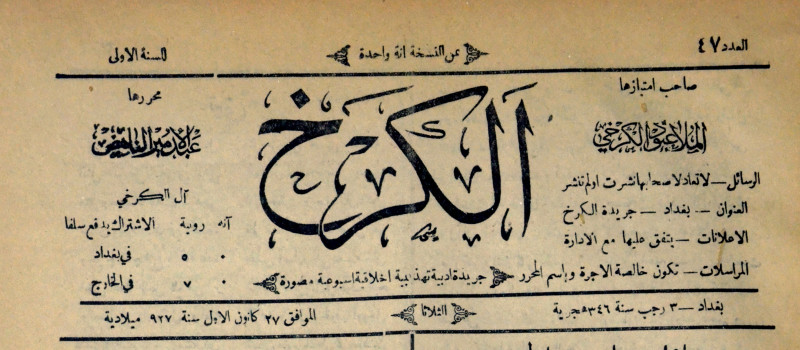 العدد ٤٧
ثمن النسخة آنة واحدة
السنة الاولى
صاحب امتيازها
الملا عبود الكرخي
الرسائل — لا تعاد لاصحابها نشرت اولم تنشر
العنوان — بغداد — جريدة الكرخ
الاعلانات — يتفق عليها مع الادارة
المراسلات — تكون خالصة الاجرة وباسم المحرر
الكرخ
جريدة ادبية تهذيبية اخلاقية اسبوعية مصورة
محررها
عبد الامير الناهض
آل الكرخي
آنه روبية الاشتراك يدفع سلفا
٠ ٥ في بغداد
٠ ٧ في الخارج
بغداد — ٣ رجب سنة ٣٤٦ هجرية
الثلاثا
الموافق ٢٧ كانون الاول سنة ٩٢٧ ميلادية